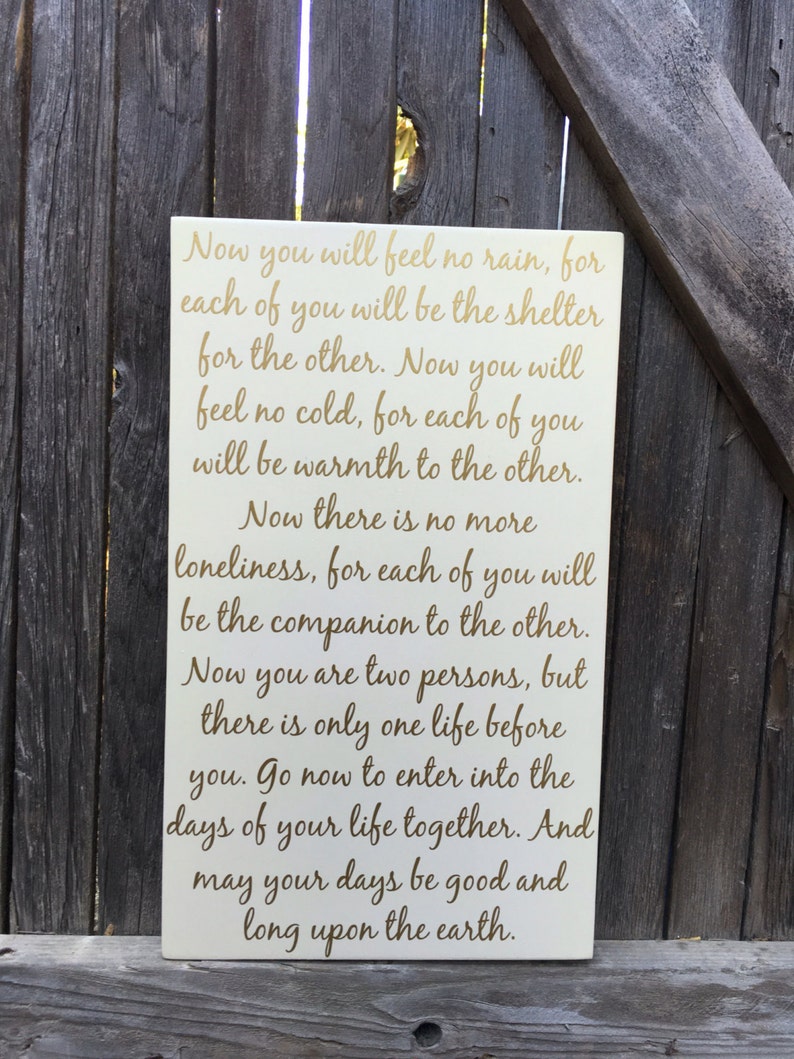 Now you will feel no rain, for
each of you will be the shelter
for the other. Now you will
feel no cold, for each of you
will be warmth to the other.
Now there is no more
loneliness, for each of you will
be the companion to the other.
Now you are two persons, but
there is only one life before
you. Go now to enter into the
days of your life together. And
may your days be good and
long upon the earth.